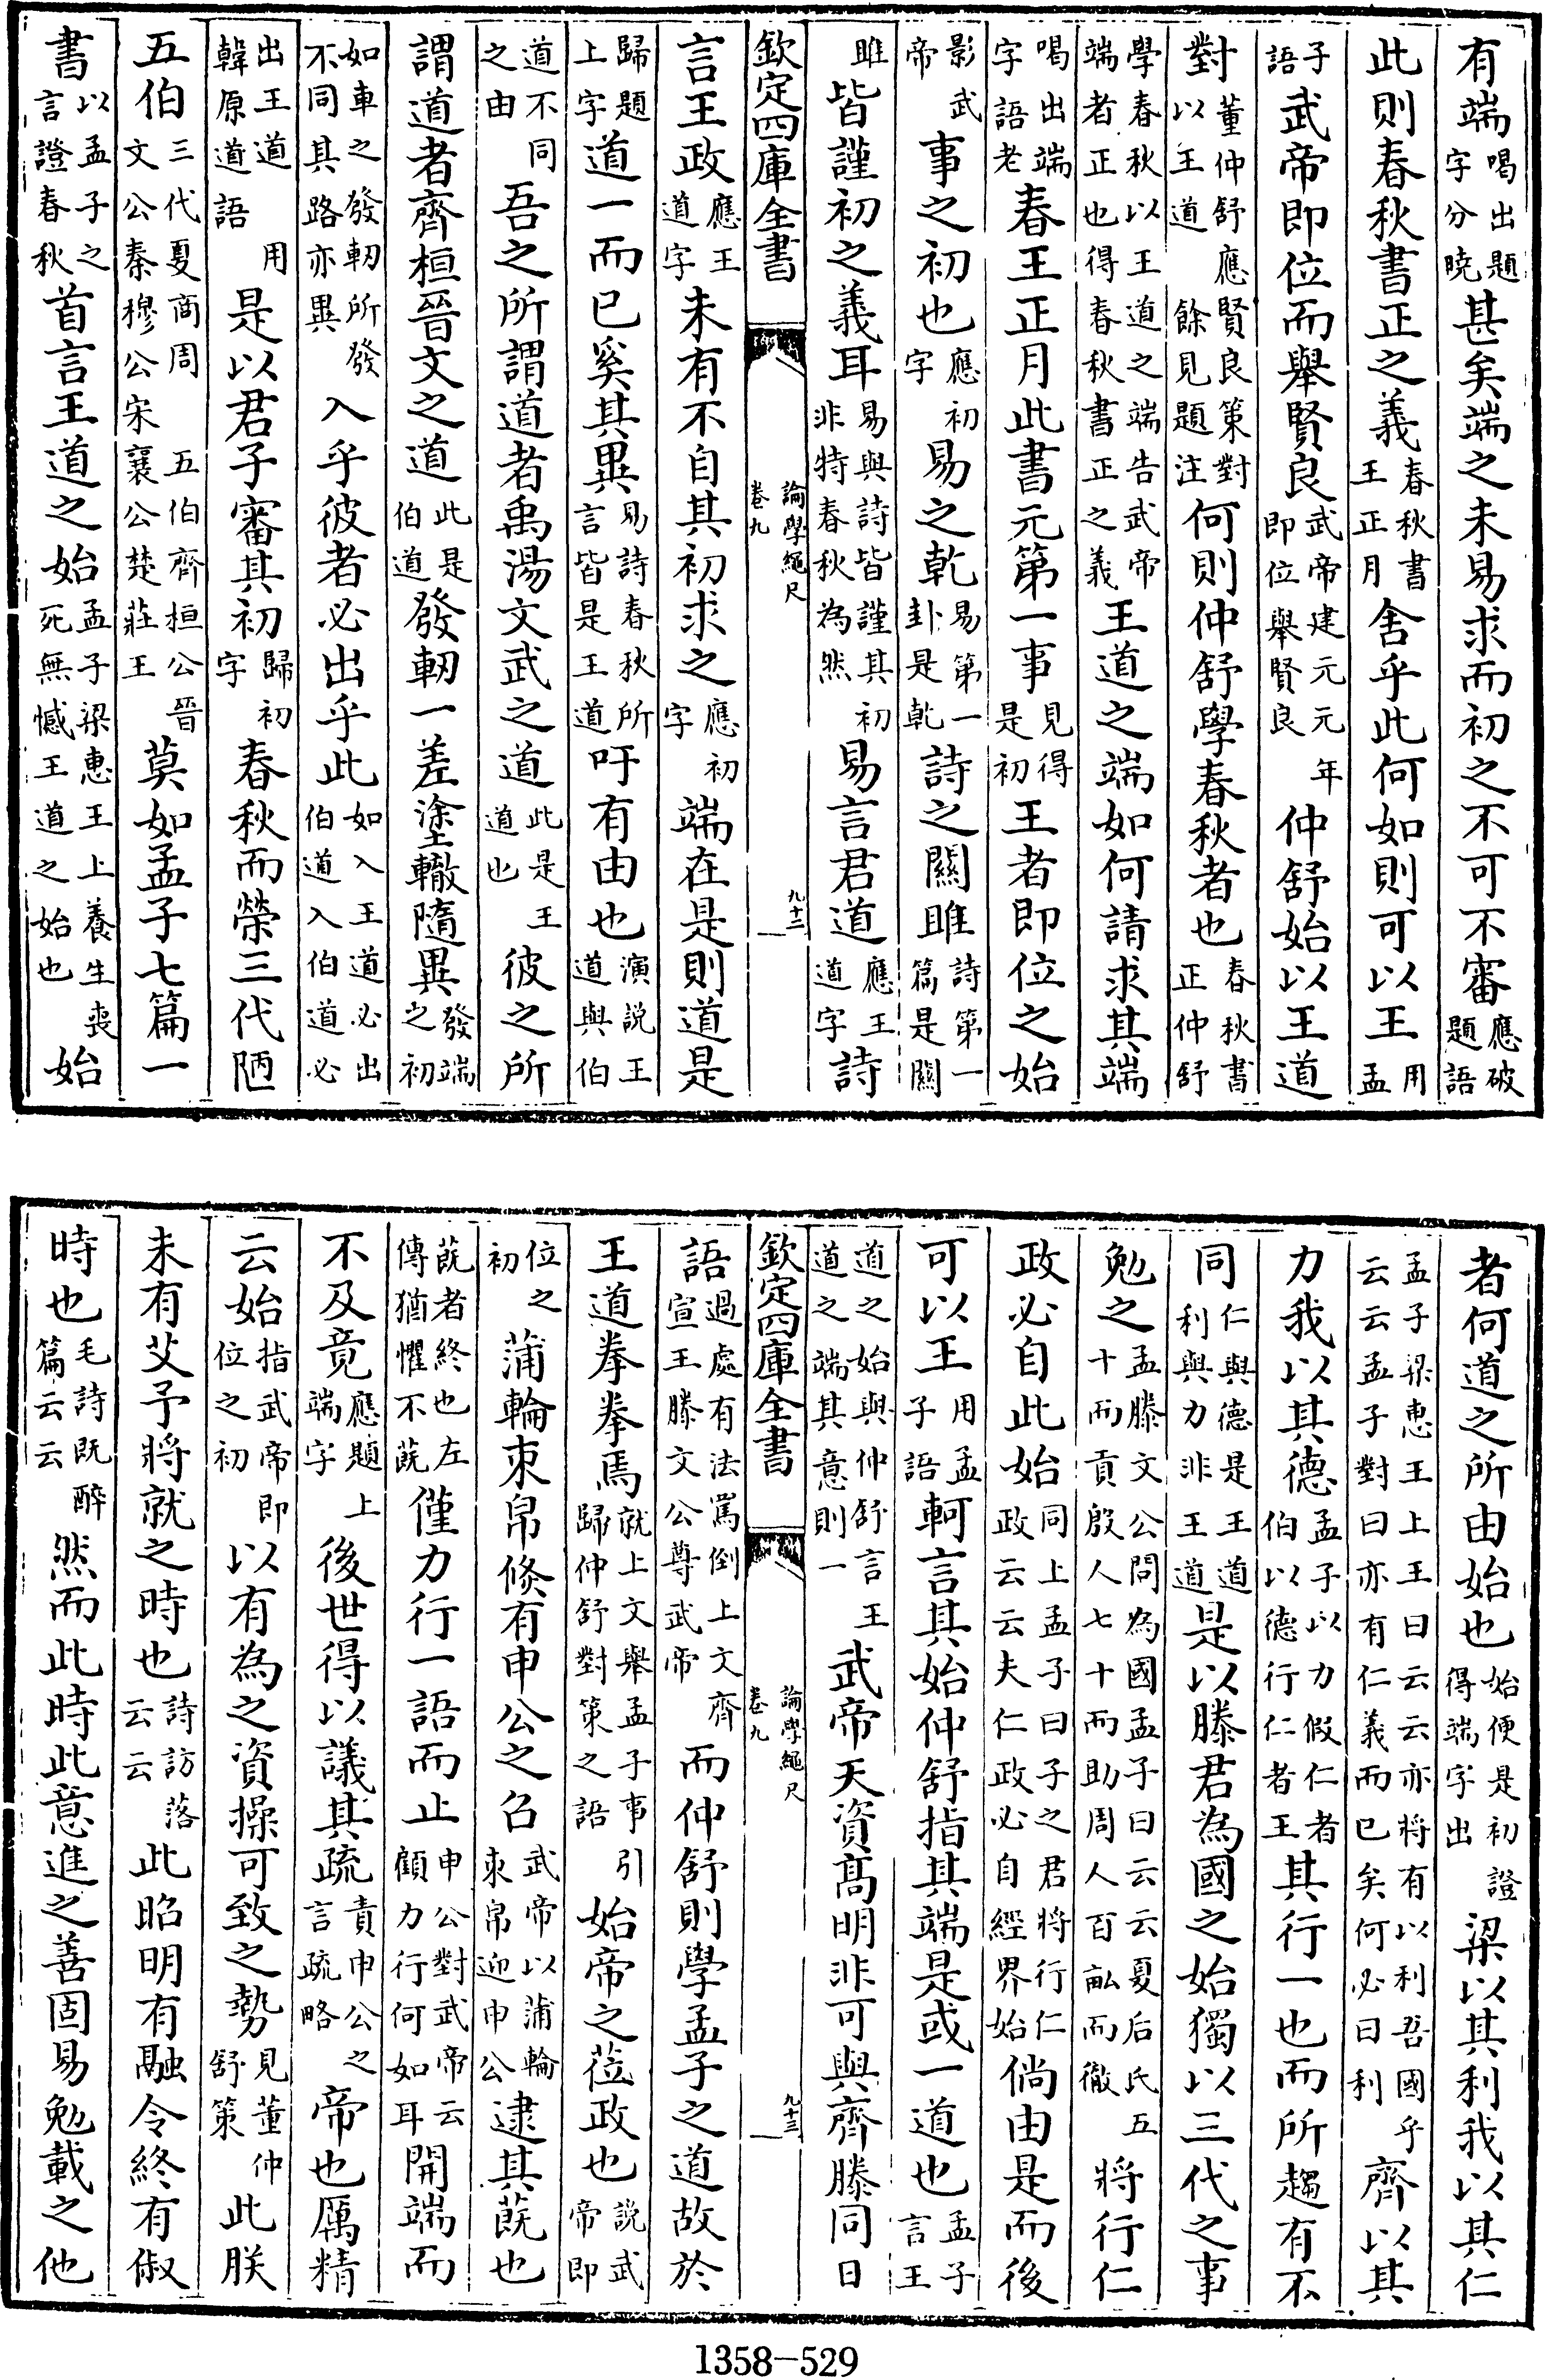 有端喝出題字分曉甚矣端之未易求而初之不可不審應破題語
此則春秋書正之義春秋書王正月舍乎此何如則可以王用孟
子語武帝即位而舉賢良武帝建元元年即位舉賢良仲舒始以王道
對董仲舒應賢良策對以王道餘見題注何則仲舒學春秋者也春秋書正仲舒
學春秋以王道之端告武帝端者正也得春秋書正之義王道之端如何請求其端
喝出端字語老春王正月此書元第一事見得是初王者即位之始
影武帝事之初也應初字易之乾易第一卦是乾詩之關雎詩第一篇是關
雎皆謹初之義耳易與詩皆謹其初非特春秋為然易言君道應王道字詩
欽定四庫全書 論學繩尺 卷九 九十二
言王政應王道字未有不自其初求之應初字端在是則道是
歸題上字道一而已奚其異易詩春秋所言皆是王道吁有由也演說王道與伯
道不同之由吾之所謂道者禹湯文武之道此是王道也彼之所
謂道者齊桓晉文之道此是伯道發軔一差塗轍隨異發端之初
如車之發軔所發不同其路亦異入乎彼者必出乎此如入王道必出伯道入伯道必
出王道用韓原道語是以君子審其初歸初字春秋而榮三代陋
五伯三代夏商周五伯齊桓公晉文公秦穆公宋襄公楚莊王莫如孟子七篇一
書以孟子之言證春秋首言王道之始孟子梁惠王上養生喪死無憾王道之始也始
者何道之所由始也始便是初證得端字出梁以其利我以其仁
孟子梁惠王上王曰云云亦將有以利吾國乎云云孟子對曰亦有仁義而已矣何必曰利齊以其
力我以其德孟子以力假仁者伯以德行仁者王其行一也而所趨有不
同仁與德是王道利與力非王道是以滕君為國之始獨以三代之事
勉之孟滕文公問為國孟子曰云云夏后氏五十而貢殷人七十而助周人百畝而徹將行仁
政必自此始同上孟子曰子之君將行仁政云云夫仁政必自經界始倘由是而後
可以王用孟子語軻言其始仲舒指其端是或一道也孟子言王
道之始與仲舒言王道之端其意則一武帝天資髙明非可與齊滕同日
欽定四庫全書 論學繩尺 卷九 九十三
語過處有法罵倒上文齊宣王滕文公尊武帝而仲舒則學孟子之道故於
王道拳拳焉就上文舉孟子事引歸仲舒對策之語始帝之蒞政也說武帝即
位之初蒲輪束帛倐有申公之召武帝以蒲輪束帛迎申公逮其蓺也
蓺者終也左傳猶懼不蓺僅力行一語而止申公對武帝云顧力行何如耳開端而
不及竟應題上端字後世得以議其疏責申公之言疏略帝也厲精
云始指武帝即位之初以有為之資操可致之勢見董仲舒策此朕
未有艾予將就之時也詩訪落云云此昭明有融令終有俶
時也毛詩既醉篇云云然而此時此意進之善固易勉載之他
1358-529